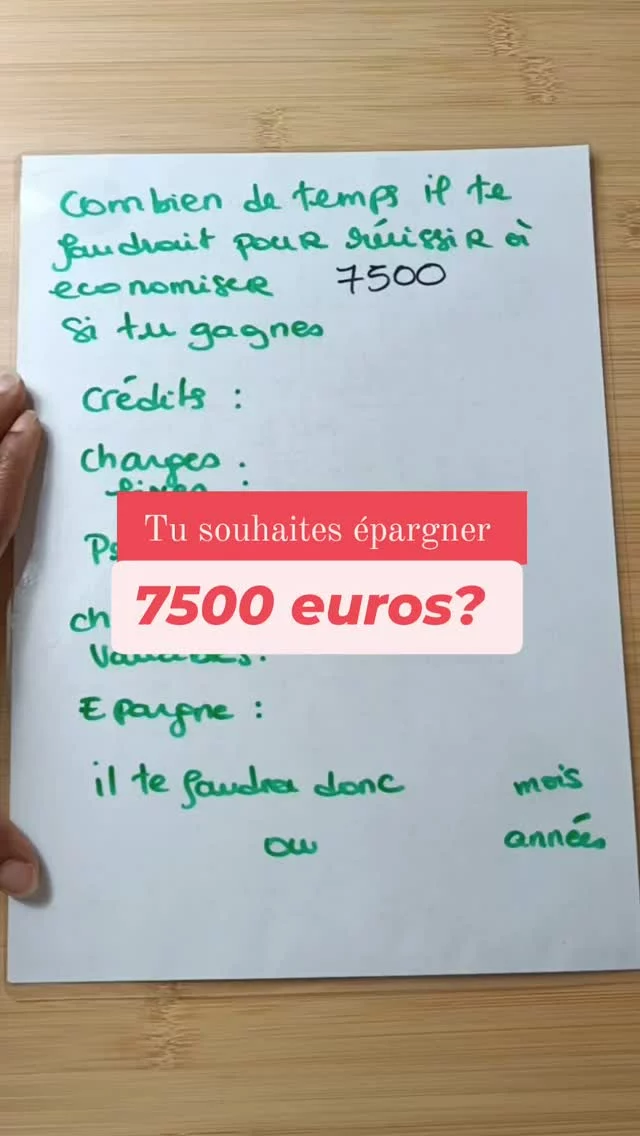 Combien de temps il te
faudrait pour réussir à
economiser 7500
Si tu gagnes
Crédits :
Charges :
Tu souhaites épargner
7500 euros?
Epargne :
il te faudra donc mois
ou années